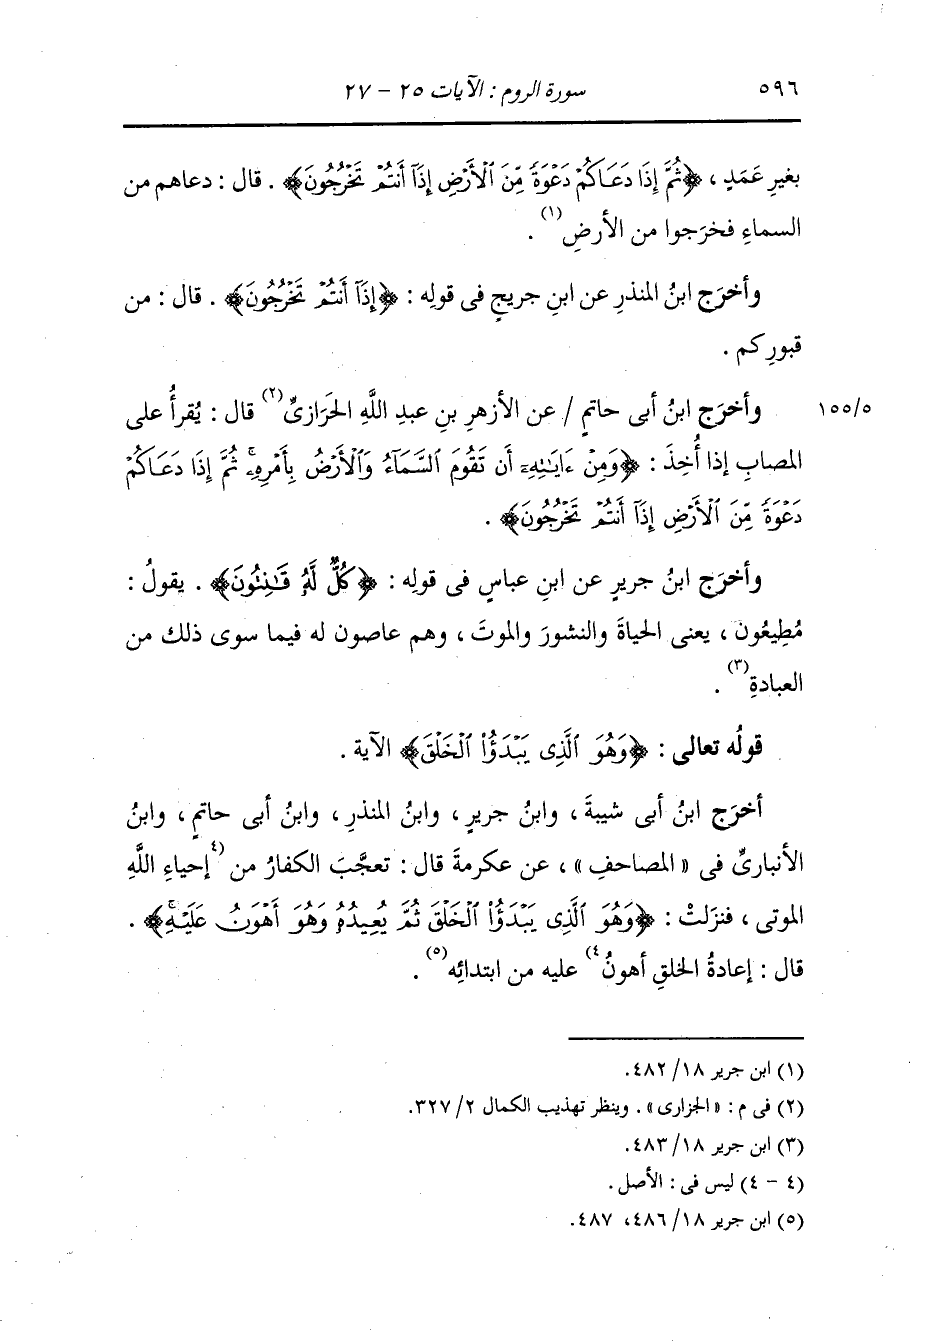 ٥٩٦ سورة الروم : الآيات ٢٥ - ٢٧
بغيرِ عَمَدٍ ، ﴿ثُمَّ إِذَا دَعَاكُمْ دَعْوَةً مِّنَ ٱلْأَرْضِ إِذَآ أَنتُمْ تَخْرُجُونَ﴾ . قال : دعاهم من
السماءِ فخرَجوا من الأرضِ(١) .
وأخرَج ابنُ المنذرِ عن ابنِ جريجٍ فى قولِه : ﴿إِذَآ أَنتُمْ تَخْرُجُونَ﴾ . قال : من
قبورِكم .
وأخرَج ابنُ أبى حاتمٍ / عن الأزهرِ بنِ عبدِ اللَّهِ الحَرَازىِّ(٢) قال : يُقرأُ على ١٥٥/٥
المصابِ إذا أُخِذَ : ﴿وَمِنْ ءَايَـٰتِهِۦٓ أَن تَقُومَ ٱلسَّمَآءُ وَٱلْأَرْضُ بِأَمْرِهِۦۚ ثُمَّ إِذَا دَعَاكُمْ
دَعْوَةً مِّنَ ٱلْأَرْضِ إِذَآ أَنتُمْ تَخْرُجُونَ﴾ .
وأخرَج ابنُ جريرٍ عن ابنِ عباسٍ فى قولِه : ﴿كُلٌّ لَّهُۥ قَـٰنِتُونَ﴾ . يقولُ :
مُطِيعُون ، يعنى الحياةَ والنشورَ والموتَ ، وهم عاصون له فيما سوى ذلك من
العبادةِ(٣) .
قولُه تعالى : ﴿وَهُوَ ٱلَّذِى يَبْدَؤُا۟ ٱلْخَلْقَ﴾ الآية .
أخرَج ابنُ أبى شيبةَ ، وابنُ جريرٍ ، وابنُ المنذرِ ، وابنُ أبى حاتمٍ ، وابنُ
الأنبارىِّ فى « المصاحفِ » ، عن عكرمةَ قال : تعجَّبَ الكفارُ من (٤إحياءِ اللَّهِ
الموتى ، فنزَلتْ : ﴿وَهُوَ ٱلَّذِى يَبْدَؤُا۟ ٱلْخَلْقَ ثُمَّ يُعِيدُهُۥ وَهُوَ أَهْوَنُ عَلَيْهِۚ﴾ .
قال : إعادةُ الخلقِ أهونُ٤) عليه من ابتدائِه(٥) .
(١) ابن جرير ١٨/ ٤٨٢.
(٢) فى م : « الجزارى » . وينظر تهذيب الكمال ٢/ ٣٢٧.
(٣) ابن جرير ١٨/ ٤٨٣.
(٤ - ٤) ليس فى : الأصل .
(٥) ابن جرير ١٨/ ٤٨٦، ٤٨٧.